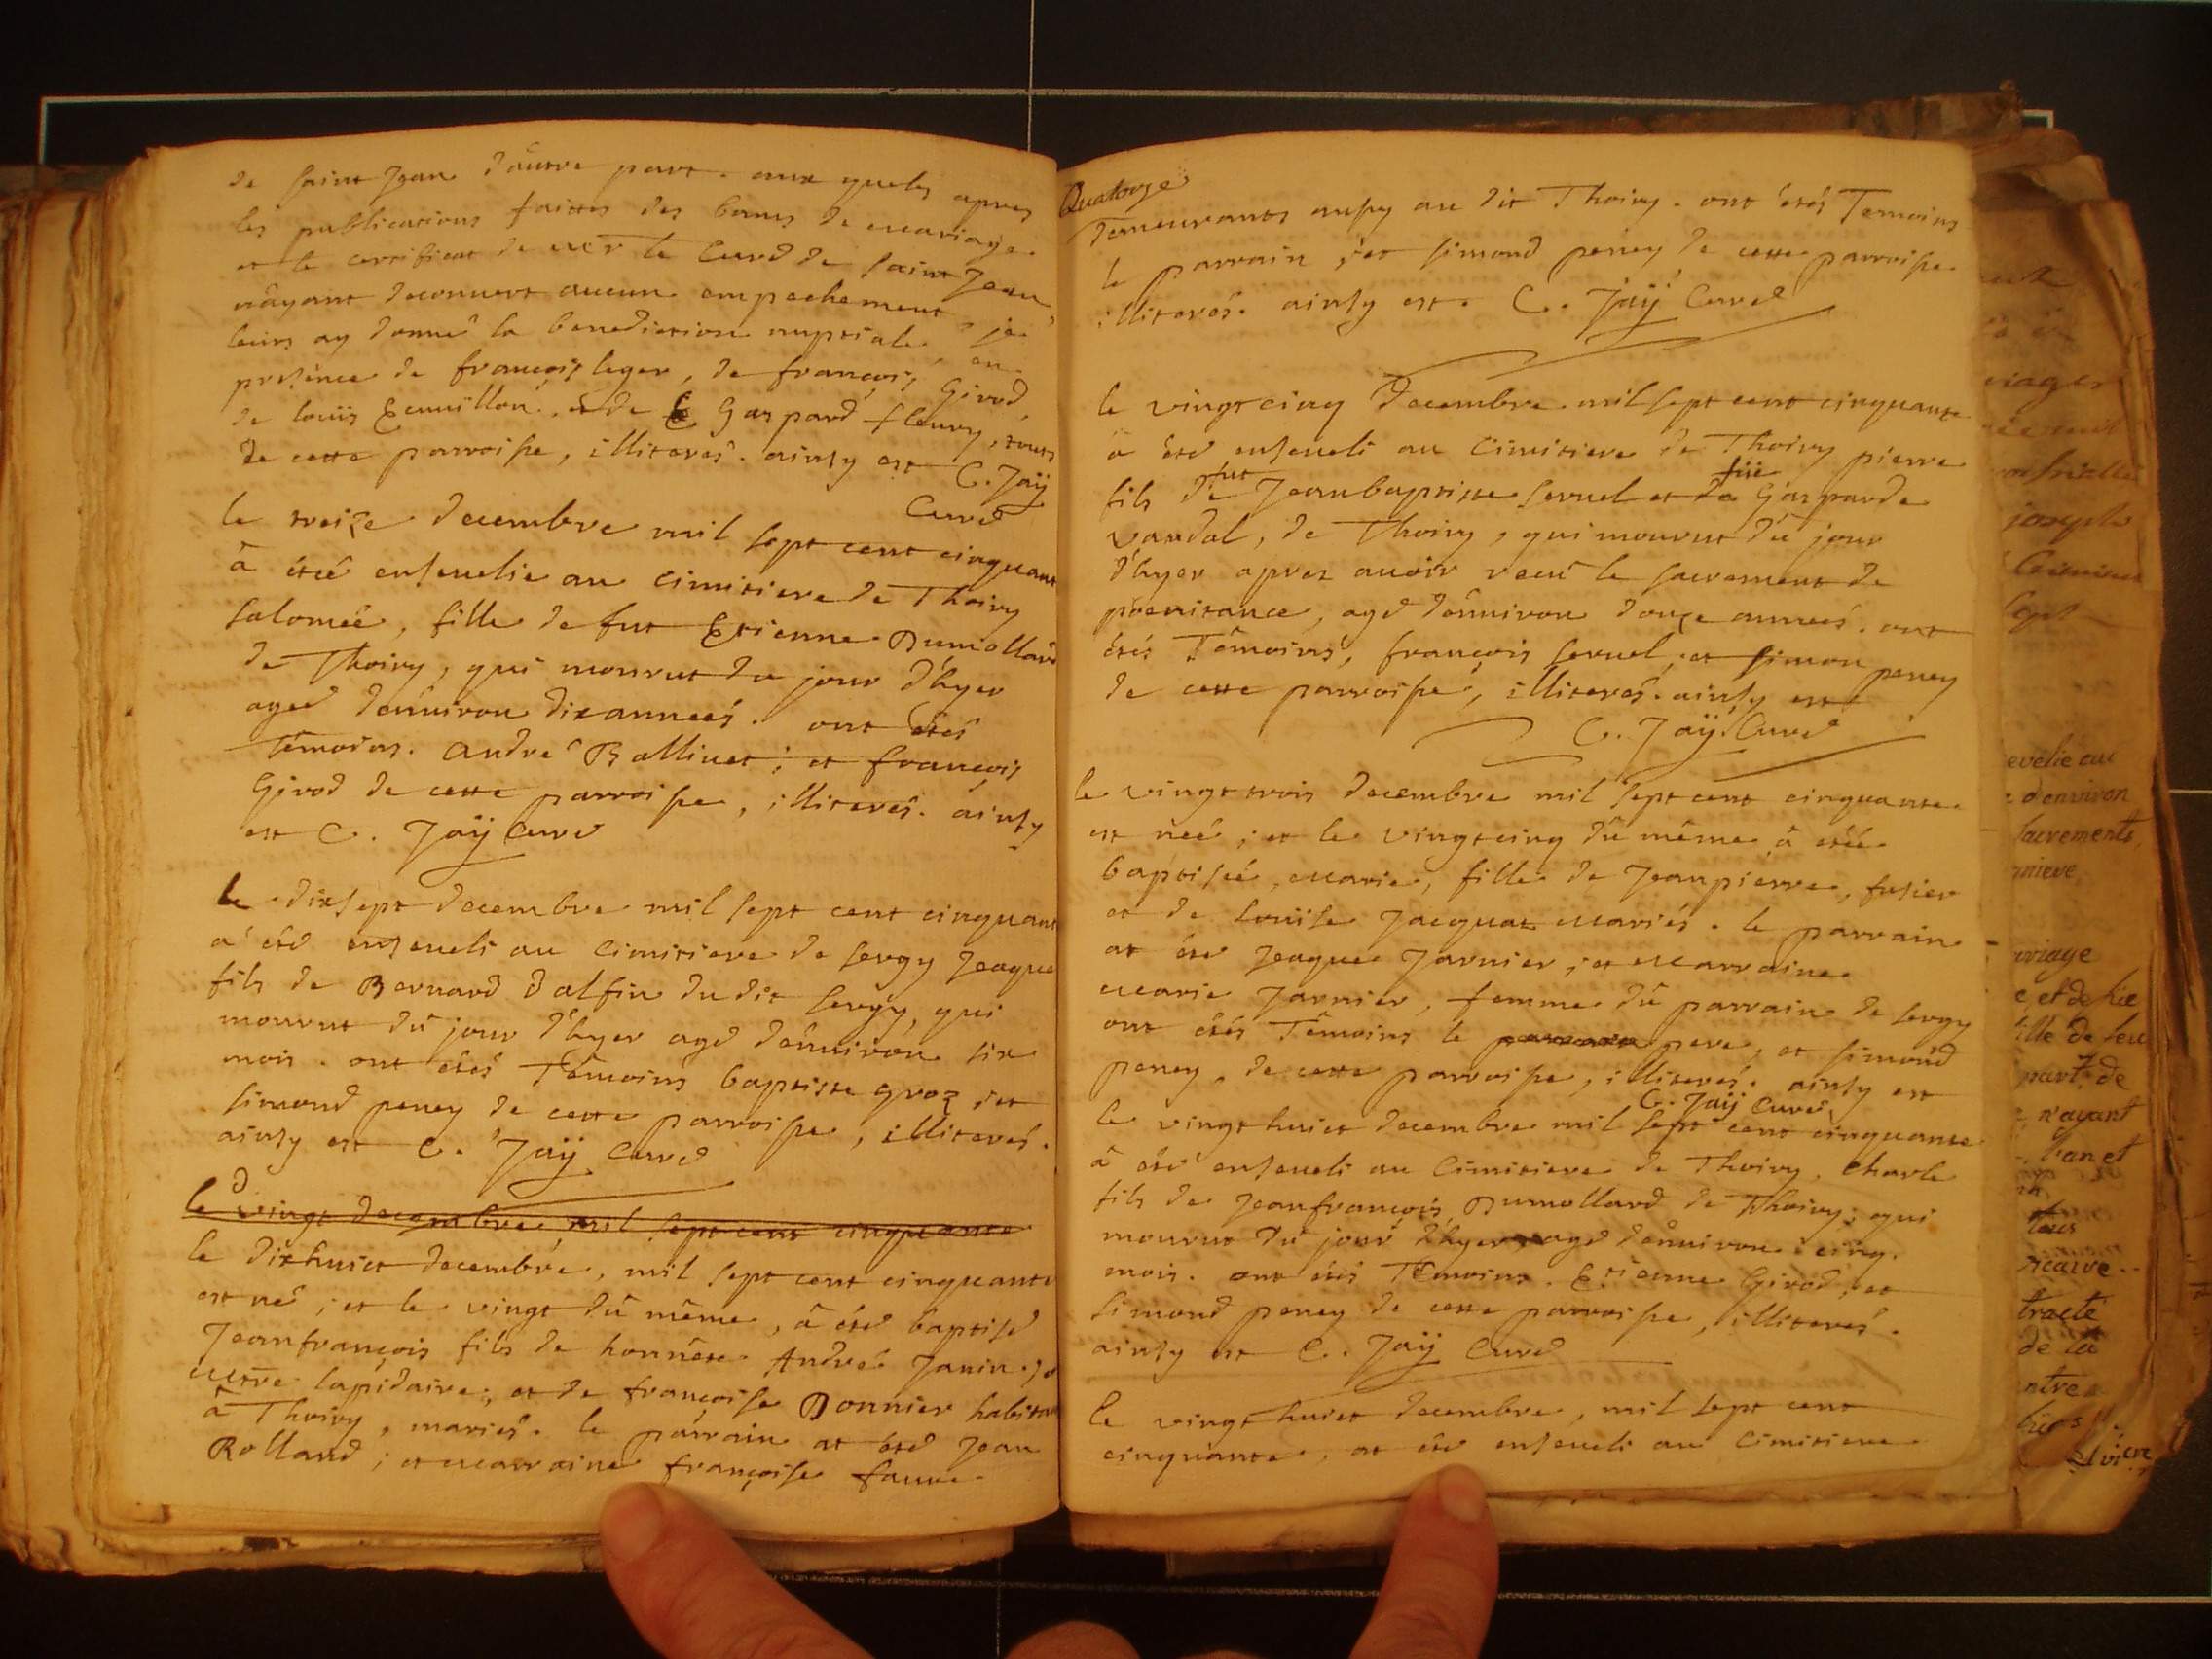 de saint Jean d'autre part. aux quels apres
les publications faittes des bans de mariage.
et le certificat de mer le Curé de saint Jean,
n'ayant decouvert aucun empechement, je
leurs ay donné la benediction nuptiale, en
presence de françois leger, de françois Girod,
de louis Emuillon, et de Gaspard fleury, touts
de cette parroisse, illiterés. ainsy est C. Jaÿ
Curé
le treize decembre mil sept cent cinquant
à étéé ensevelie au cimitiere de Thoiry
salomée, fille de fut Etienne Dumollard
de Thoiry, qui mourut du jour d'hyer
aged d'environ dix années. ont étés
témoins. andré Ballivet; et françois
Girod de cette parroisse, illiterés. ainsy
est C. Jaÿ Curé
le dixsept decembre mil sept cent cinquant
a été enseveli au cimitiere de sergy Jeaque
fils de Bernard Dalfin du dit sergy, qui
mourut du jour d'hyer agé d'environ six
mois. ont étés Témoins baptiste groz, et
simond peney de cette parroisse, illiterés.
ainsy est C. Jaÿ Curé
le vingt decembre mil sept cent cinquante
le dixhuict decembre, mil sept cent cinquante
est né; et le vingt du même, à été baptisé
Jeanfrançois fils de honnête André Janin
mtre lapidaire, et de françoise Bonnier habitant
à Thoiry, mariés. le parrain at été Jean
Rolland; et marraine françoise fauvre
Quatorze
demeurants aussy au dit Thoiry. ont étés Temoins
le parrain, et simond peney de cette parroisse
illiterés. ainsy est. C. Jaÿ Curé
le vingtcinq decembre mil sept cent cinquante
à été enseveli au Cimitiere de Thoiry pierre
fils de fut Jeanbaptiste servel et de füe Gasparde
vandal, de Thoiry, qui mourut du jour
d'hyer aprez avoir receü le sacrement de
pœnitance, agé d'environ douze années. ont
étés Témoins, françois servel, et simon peney
de cette parroisse, illiterés. ainsy est
C. Jaÿ Curé
le vingt trois decembre mil sept cent cinquante
est néé; et le vingtcinq du même à étéé
baptiséé, marie, fille de Jeanpierre, fusier
et de louise Jacquat mariés. le parrain
at été Jeaque Jarnier, et marraine
marie Jarnier, femme du parrain de sergy
ont étés Témoins le pere, et simond
peney, de cette parroisse, illiterés. ainsy est
C. Jaÿ Curé
le vingthuict decembre mil sept cent cinquante
à été enseveli au Cimitiere de Thoiry, Charle
fils de Jeanfrançois Dumollard de Thoiry; qui
mourut du jour d'hyer agé d'environ cinq
mois. ont étés Témoins. Etienne Girod, et
simond peney de cette parroisse, illiterés.
ainsy est C. Jaÿ Curé
le vingt huict decembre, mil sept cent
cinquante, at été enseveli au Cimitiere